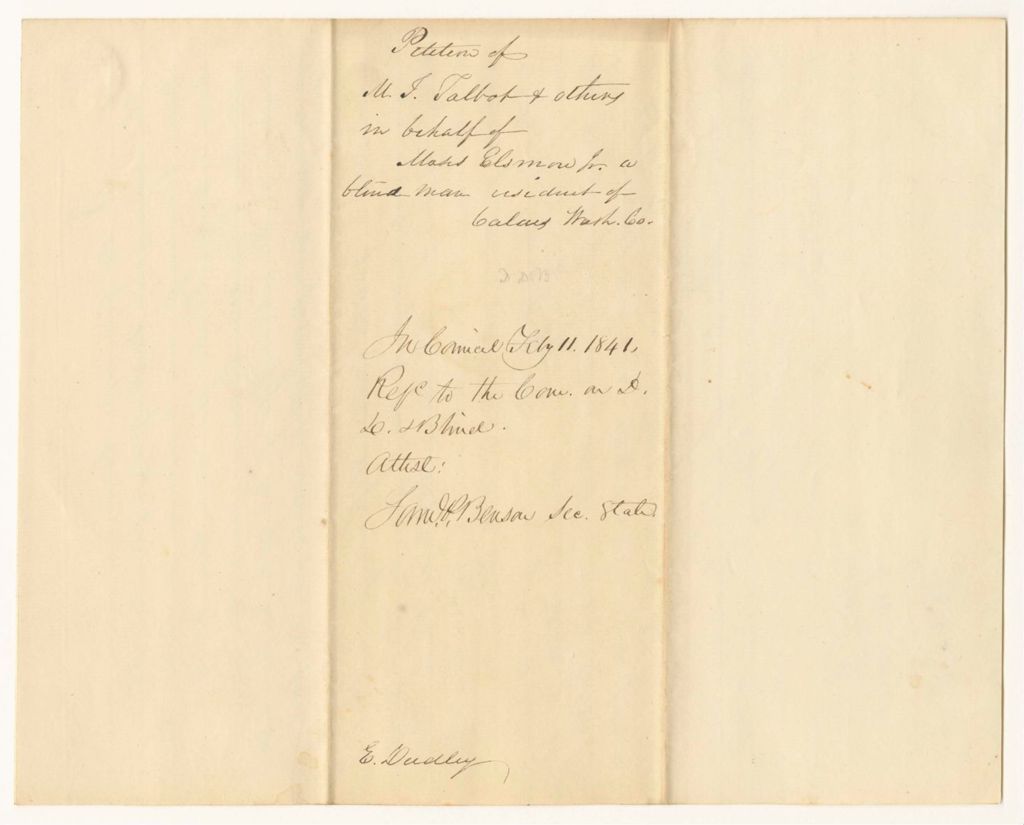 Petition of
M. J. Talbot & others
in behalf of
Moses Elsmore Jr. a
blind man resident of
Calais Wash. Co.
In Council Feby 11. 1841,
Refd to the Com. on D.
D. & Blind.
Attest:
Saml. P. Benson Sec. State
E. Dudley